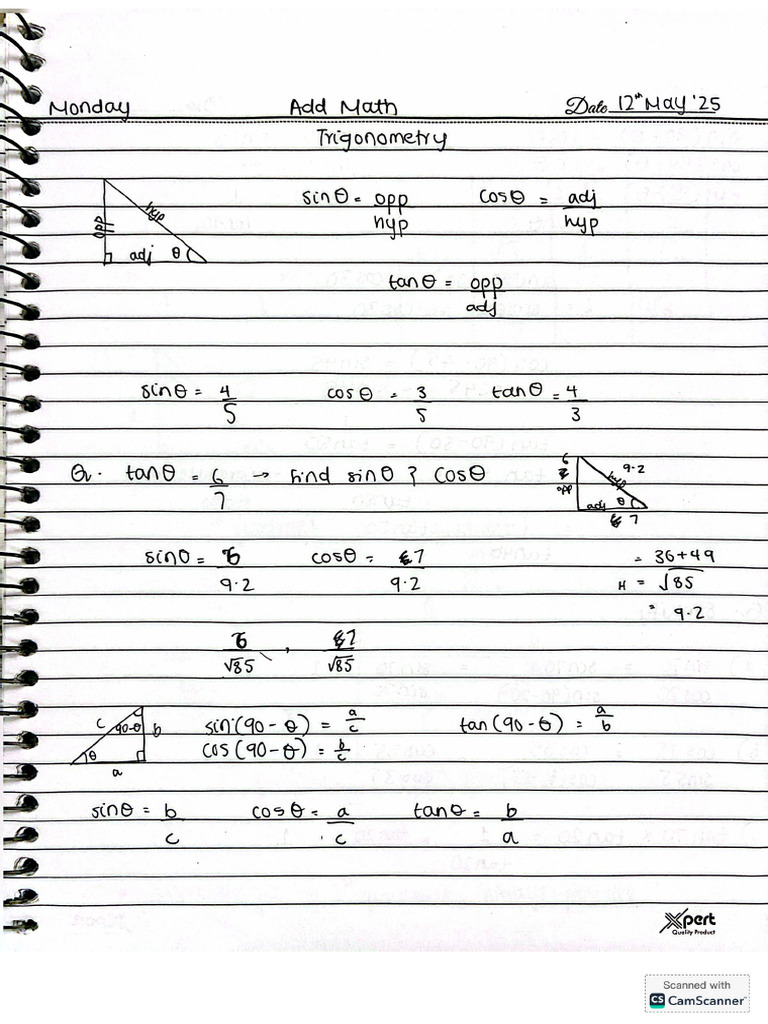 Monday Add Math Date 12th May '25
Trigonometry
opp hyp adj θ
sinθ = opp/hyp cosθ = adj/hyp
tanθ = opp/adj
sinθ = 4/5 cosθ = 3/5 tanθ = 4/3
Q. tanθ = 6/7 → find sinθ ? cosθ
6 opp hyp 9.2 adj θ 7
sinθ = 6/9.2 cosθ = 7/9.2
= 36+49
H = √85
= 9.2
6/√85 , 7/√85
c 90-θ b θ a
sin(90-θ) = a/c tan(90-θ) = a/b
cos(90-θ) = b/c
sinθ = b/c cosθ = a/c tanθ = b/a
Xpert
Quality Product
Scanned with
CS CamScanner